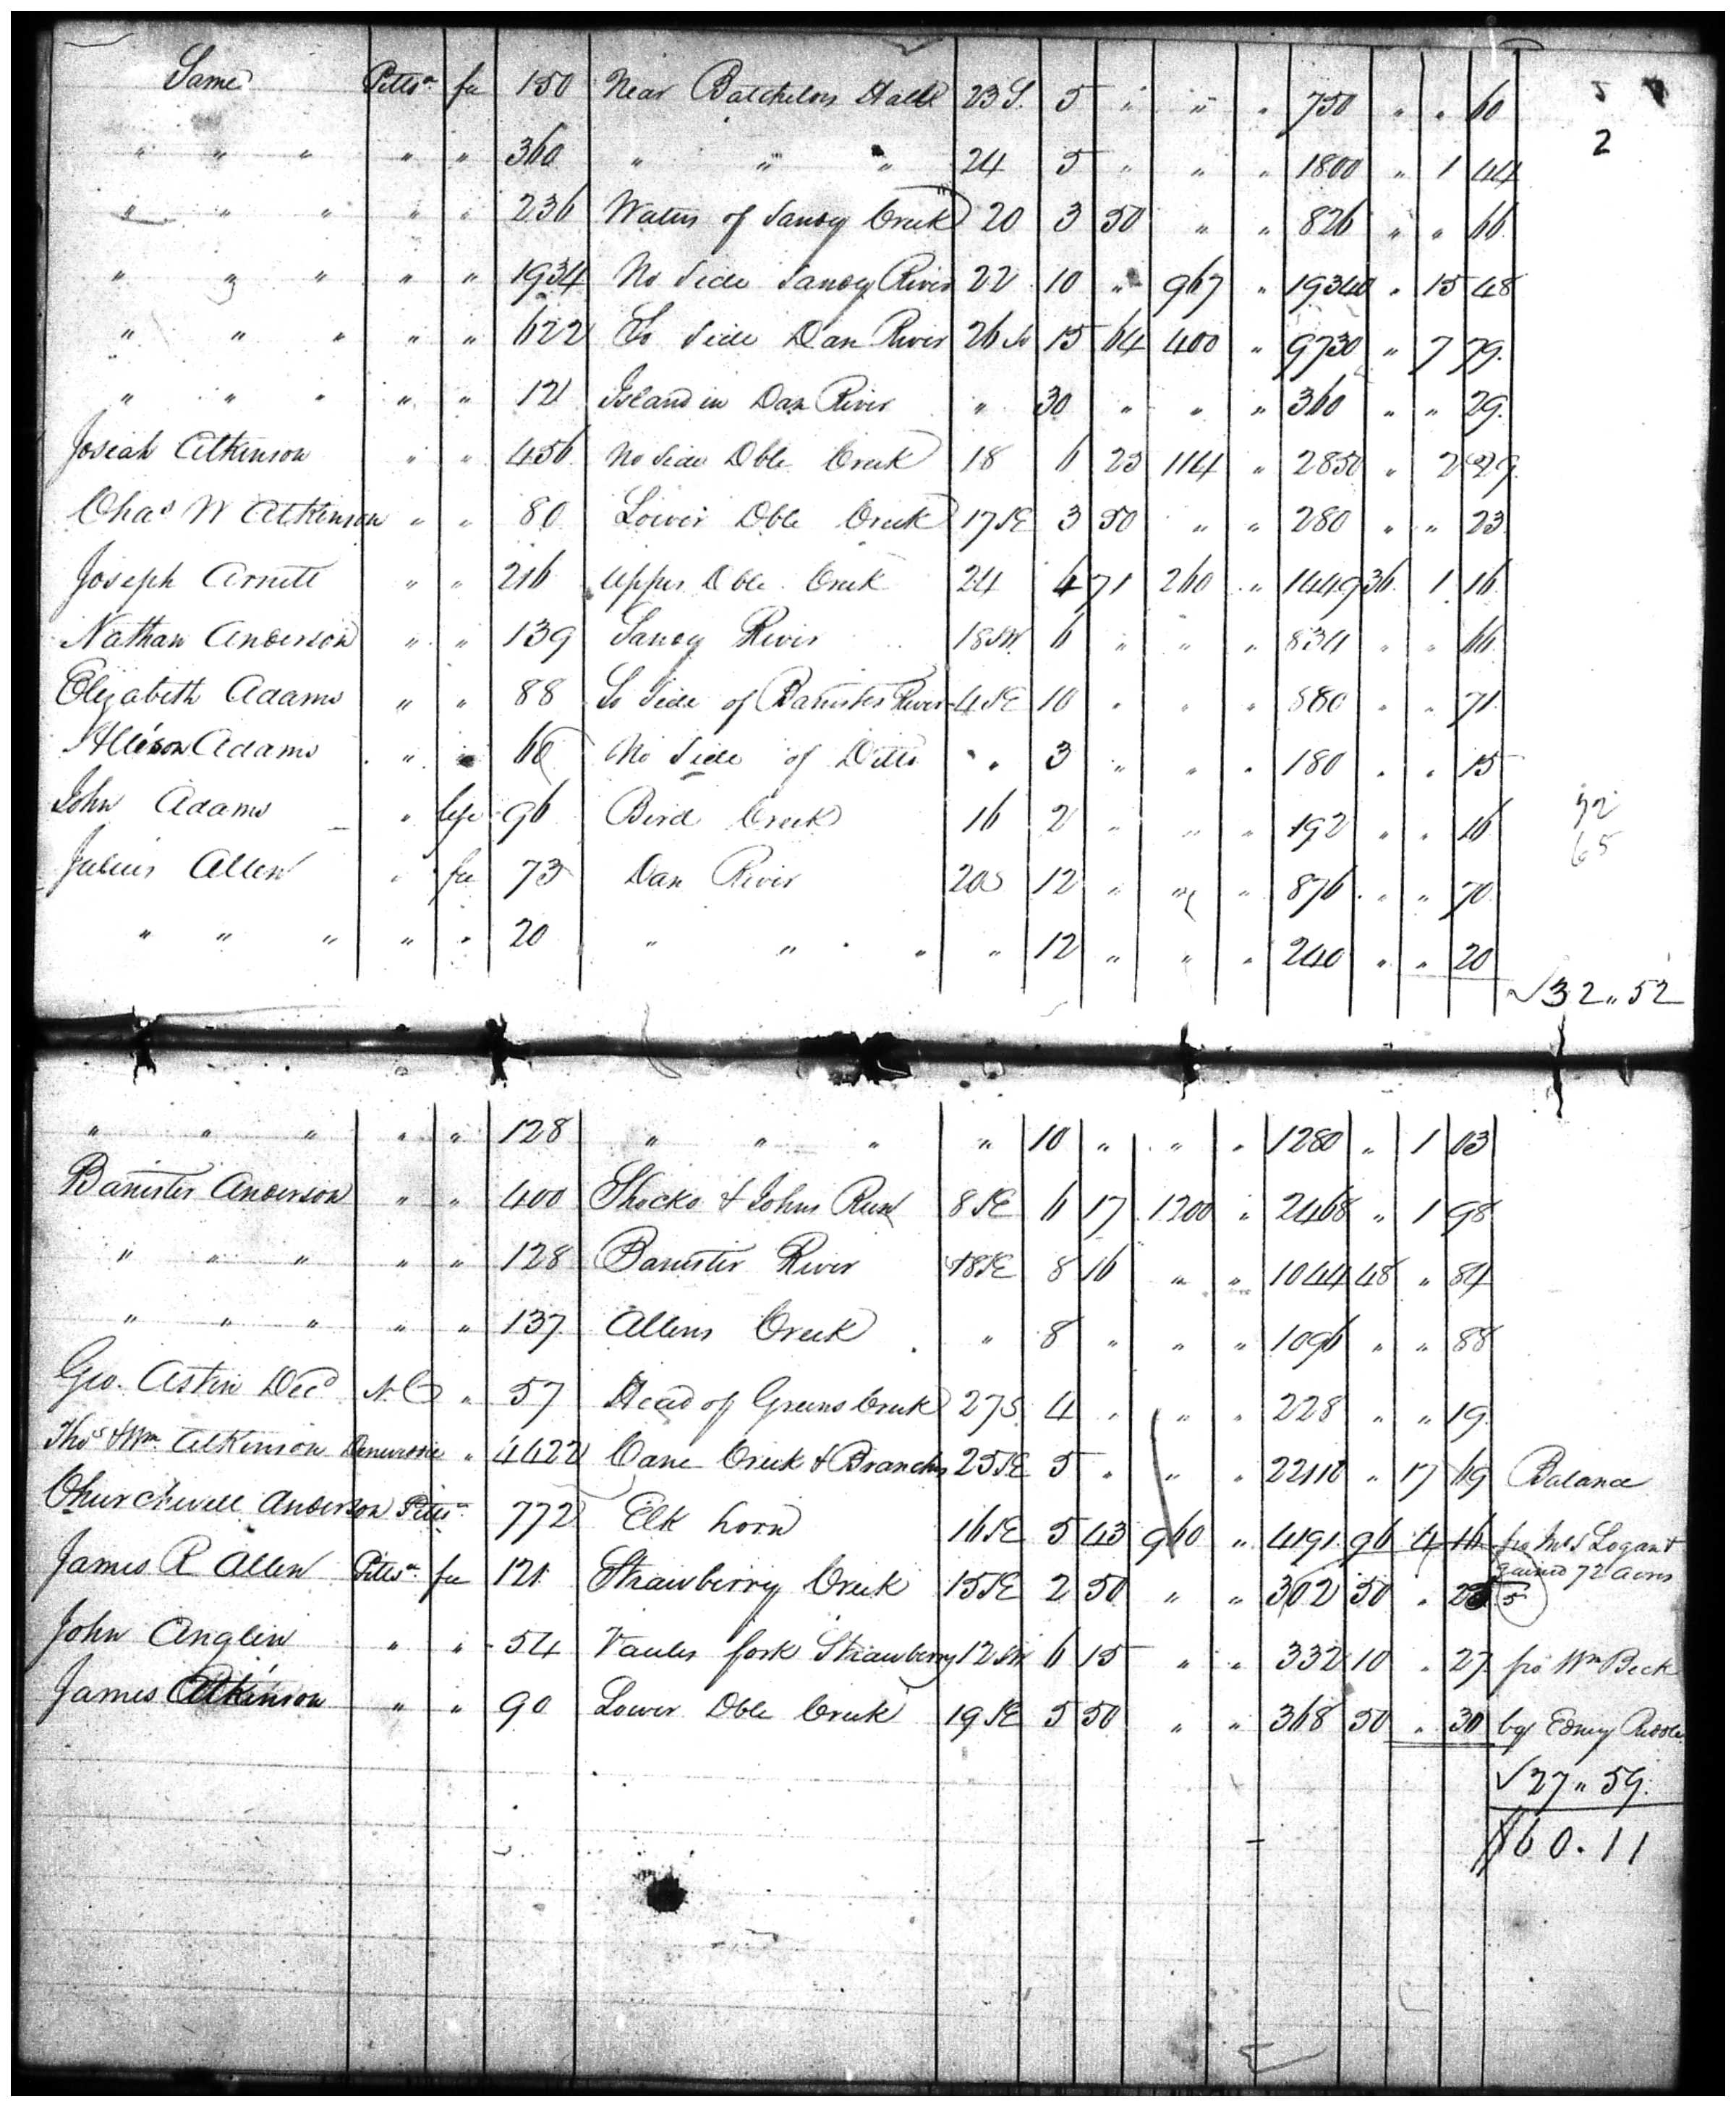 Same Pittsa fee 150 Near Batchelors Hall 23 S. 5 " " " 750 " " 60
2
" " " " " 360 " " " 24 5 " " " 1800 " 1 44
" " " " " 236 Waters of Sandy Creek 20 3 50 " " 826 " " 66
" " " " " 1934 No Side Sandy River 22 10 " 967 " 19340 " 15 48
" " " " " 622 So Side Dan River 26 So 15 64 400 " 9730 " 7 79
" " " " " 12 Island in Dan River " 30 " " " 360 " " 29
Josiah Atkinson " " 456 No Side Dble Creek 18 6 25 114 " 2850 " 2 29
Chas W Atkinson " " 80 Lower Dble Creek 17 SE 3 50 " " 280 " " 23
Joseph Arnett " " 216 Upper Dble Creek 24 6 71 260 " 1449 36 1 16
Nathan Anderson " " 139 Sandy River 18 SW 6 " " " 834 " " 66
Elizabeth Adams " " 88 So Side of Banister River 4 SE 10 " " " 880 " " 71
Allison Adams " " 60 No Side of Ditto " " 3 " " " 180 " " 15
John Adams " life 96 Bird Creek 16 2 " " " 192 " " 16
92
65
Julius Allen " fee 73 Dan River 20 S 12 " " " 876 " " 70
" " " " " 20 " " " " 12 " " " 240 " " 20
√32 " 52
" " " " " 128 " " " " 10 " " " 1280 " 1 03
Banister Anderson " " 400 Shocko & Johns Run 8 SE 6 17 1200 " 2468 " 1 98
" " " " " 128 Banister River 18 SE 8 16 " " 1044 48 " 84
" " " " " 137 Allens Creek " 8 " " " 1096 " " 88
Geo. Astin Decd N.C " 57 Head of Greens Creek 27 S. 4 " " " 228 " " 19
Thos & Wm Atkinson " 4422 Cane Creek & Branches 25 SE 5 " " " 22110 " 17 69 Balance
Churchwell Anderson Pitts 772 Elk horn 16 SE 5 43 960 " 4191 96 4 16
gained 72 Acres
James R Allen Pittsa fee 121 Strawberry Creek 15 SE 2 50 " " 302 50 " 25 5
John Anglin " " 54 fork Strawberry 12 SW 6 15 " " 332 10 " 27 fro Wm Beck
James Atkinson " " 90 Lower Dble Creek 19 SE 5 50 " " 368 50 " 30
√27 " 59
$60.11